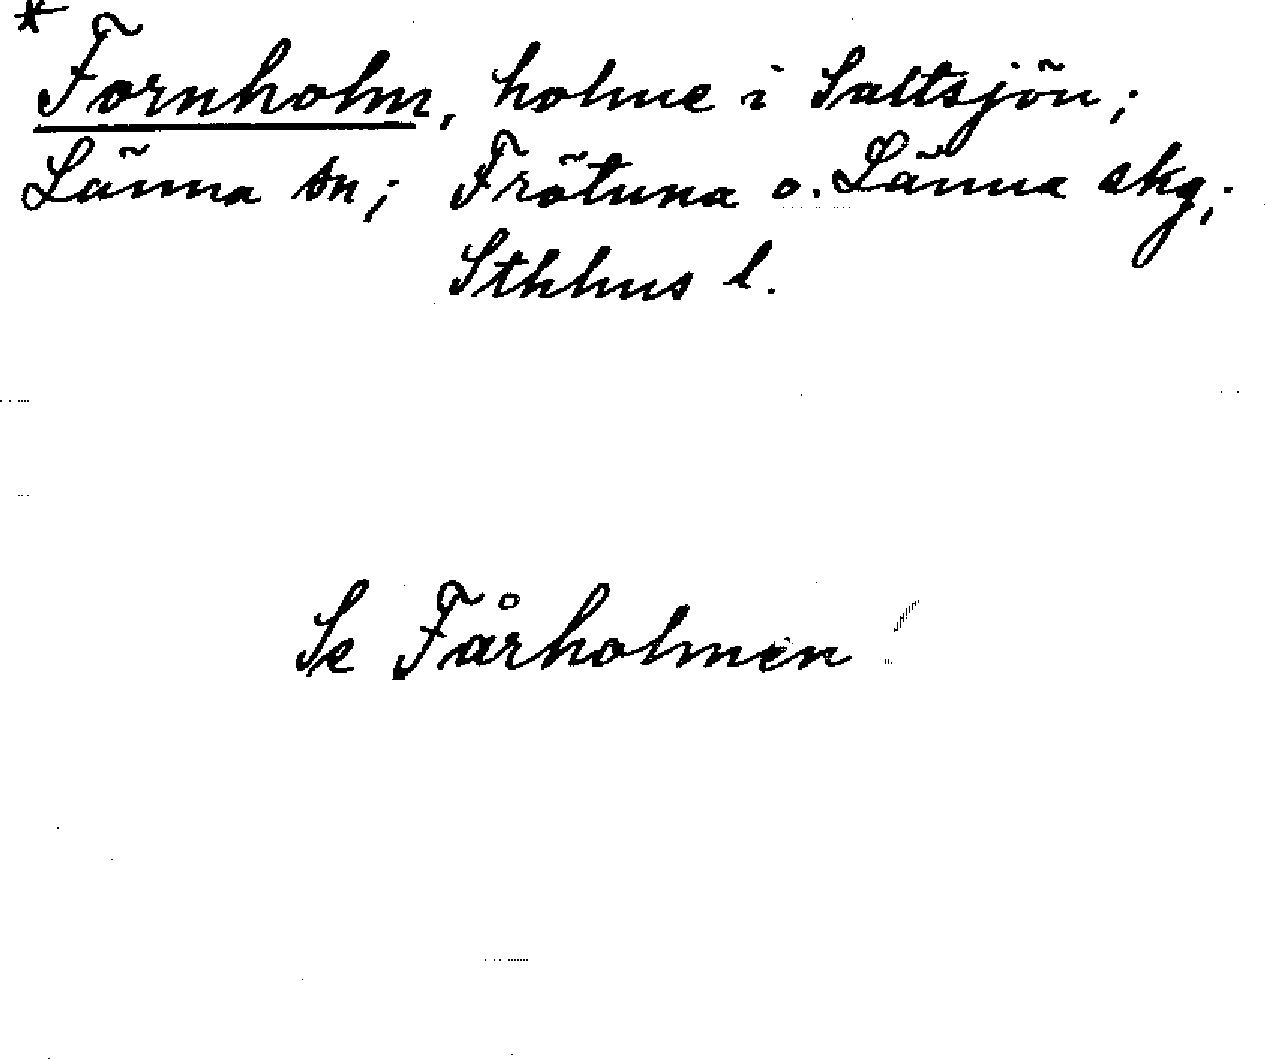 * Fornholm, holme i Saltsjön;
Länna sn; Frötuna o. Länna skg;
Sthlms l.
Se Fårholmen